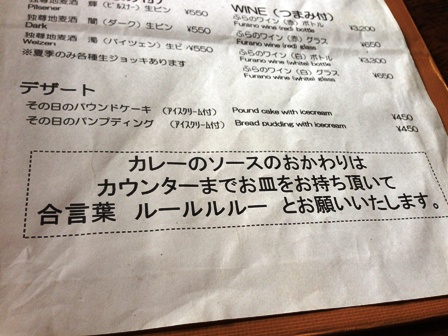 独尊地麦酒 輝（ピルスナー）生ビン ¥550
Pilsener
独尊地麦酒 闇（ダーク）生ビン ¥550
Dark
独尊地麦酒 濁（バイツェン）生ビン ¥550
Weizen
※夏季のみ各種生ジョッキあります
WINE（つまみ付）
ふらのワイン（赤）ボトル ¥3,200
Furano wine (red) bottle
ふらのワイン（赤）グラス ¥650
Furano wine (red) glass
ふらのワイン（白）ボトル ¥3,300
Furano wine (white) bottle
ふらのワイン（白）グラス ¥650
Furano wine (white) glass
デザート
その日のパウンドケーキ （アイスクリーム付） Pound cake with icecream ¥450
その日のパンプディング （アイスクリーム付） Bread pudding with icecream ¥450
カレーのソースのおかわりは
カウンターまでお皿をお持ち頂いて
合言葉 ルールルルー とお願いいたします。